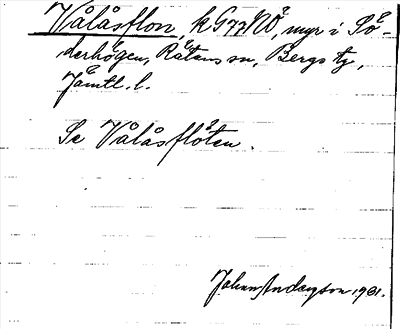 Vålåsflon, k G77NÖ, myr i Sö-
derhögen, Rätans sn, Bergs tg,
Jämtl. l.
Se Vålåsflöten.
Johan Anderson 1931.